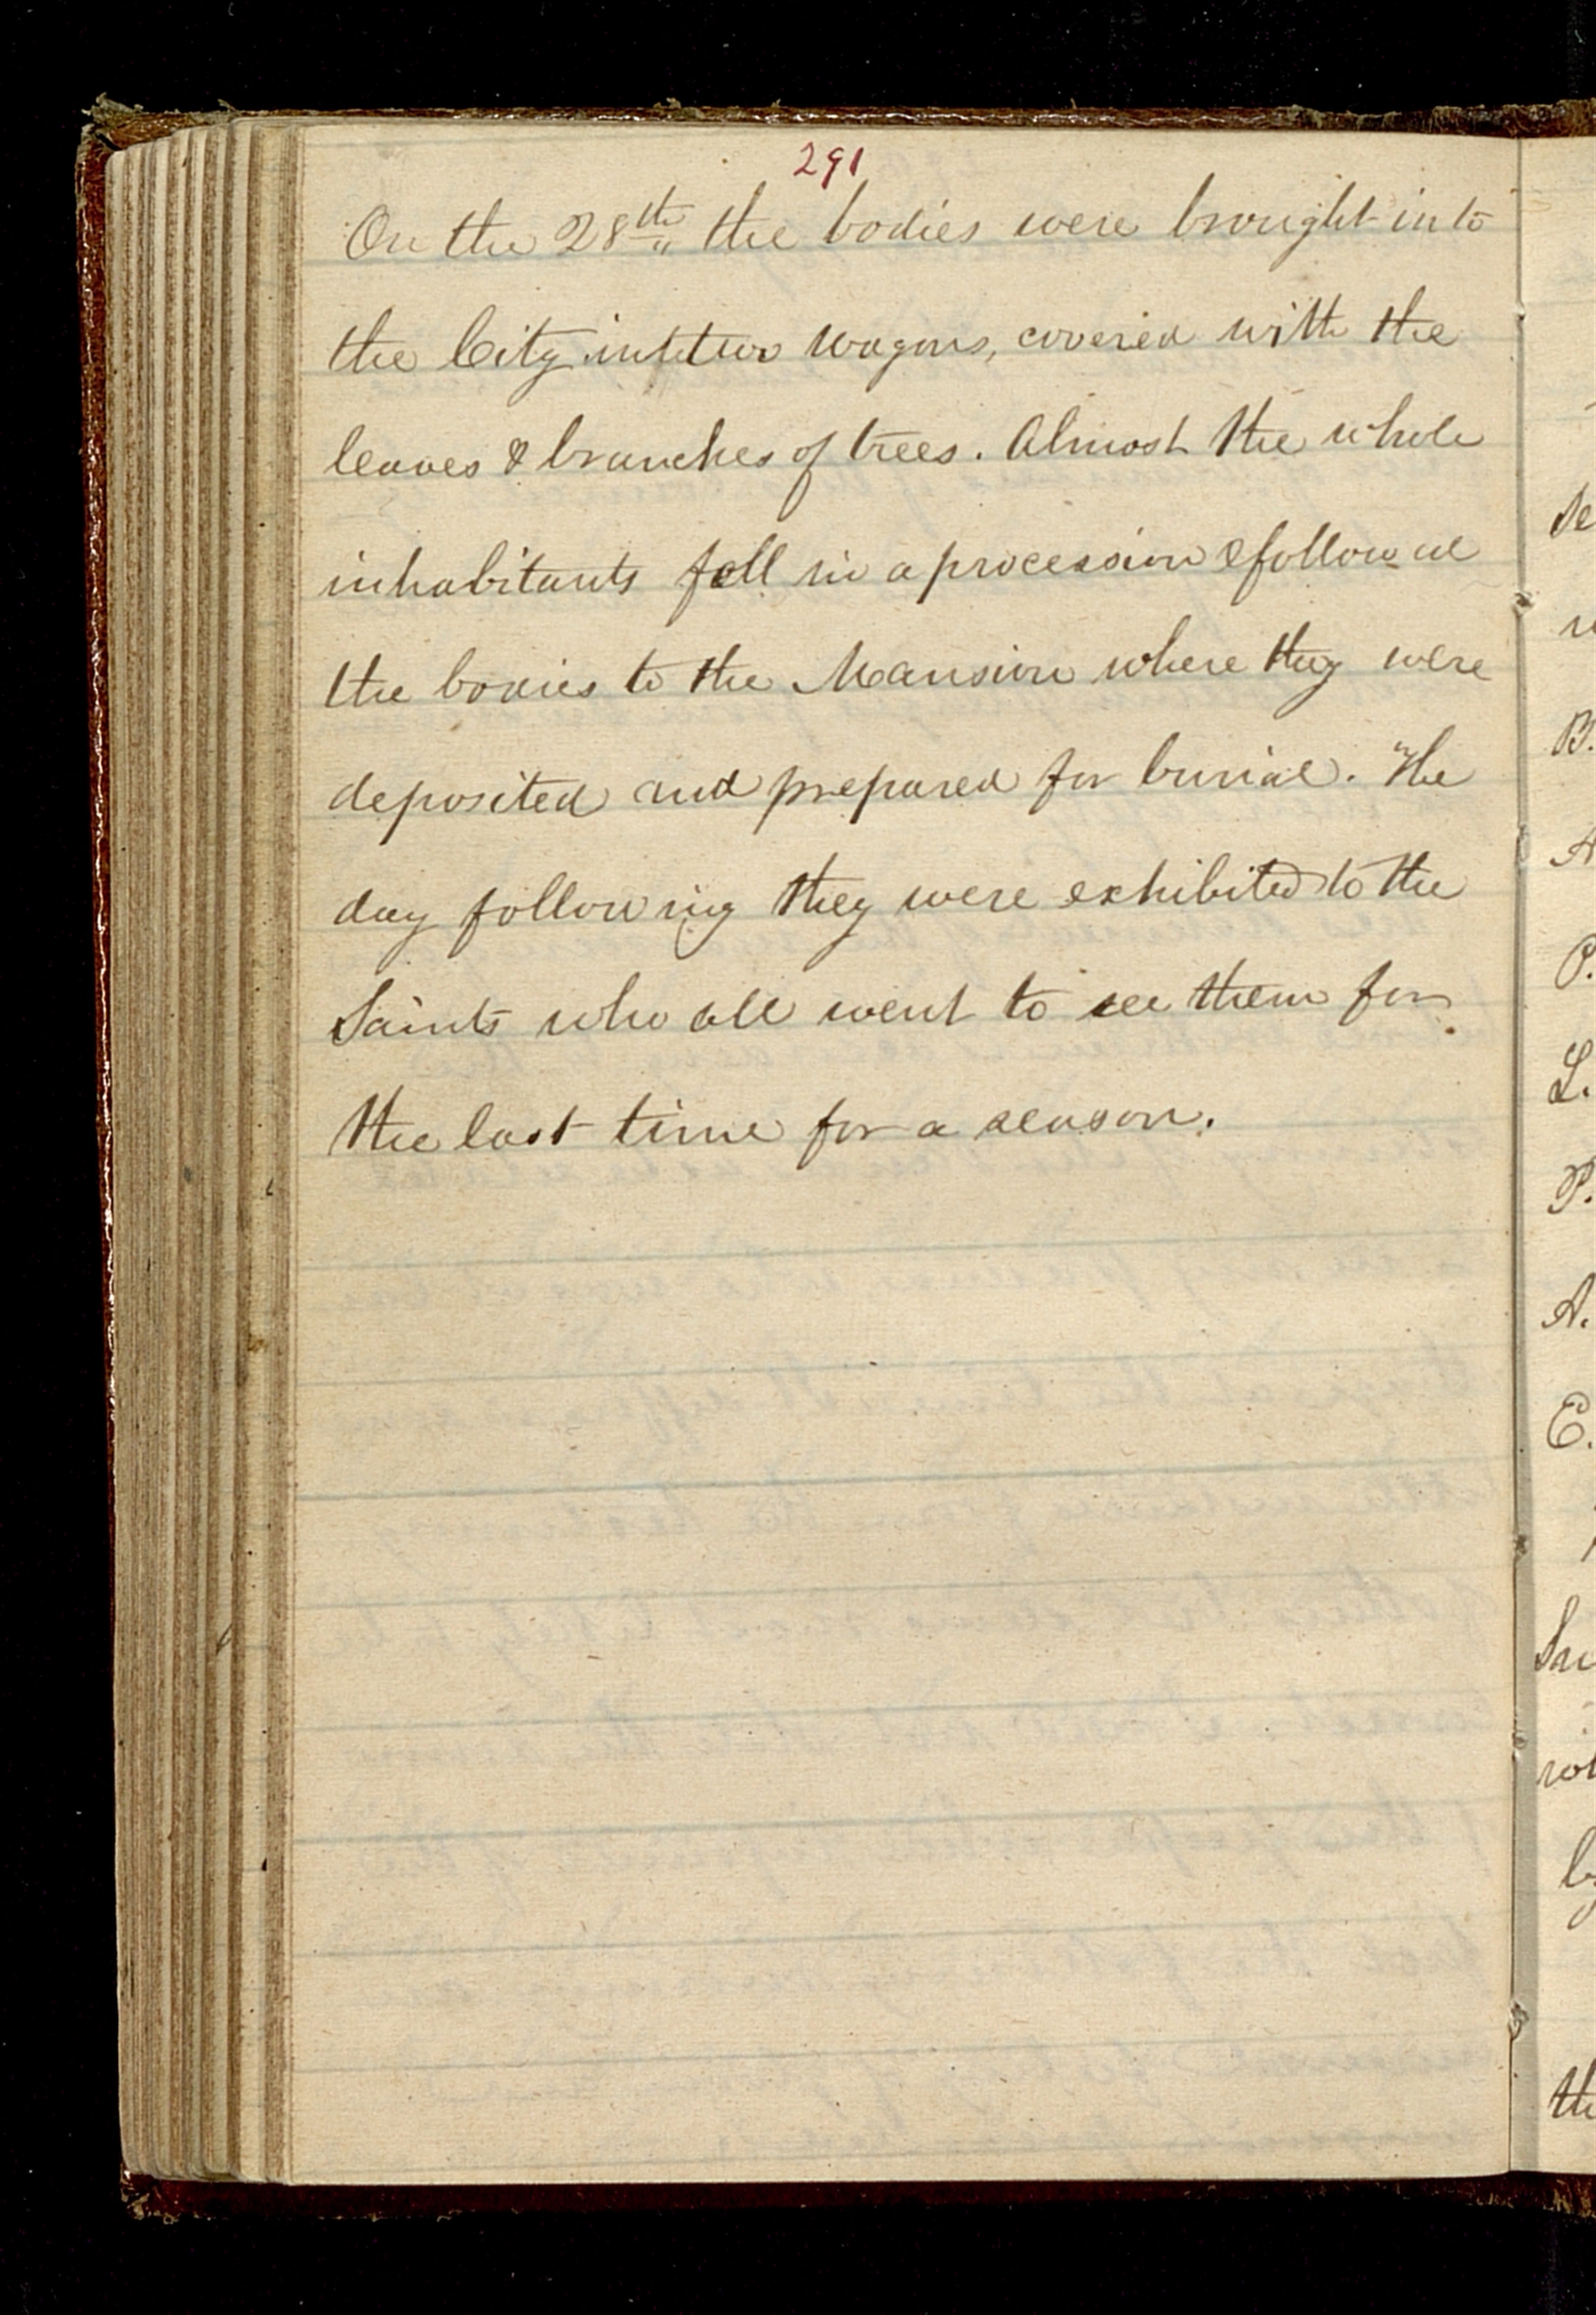 291
On the 28th the bodies were brought into
the City in two wagons, covered with the
leaves & branches of trees. Almost the whole
inhabitants fell in a procession & followed
the bodies to the Mansion where they were
deposited and prepared for burial. The
day following they were exhibited to the
Saints who all went to see them for
the last time for a season.
se
B.
A
P.
L.
P.
A.
E.
by
th